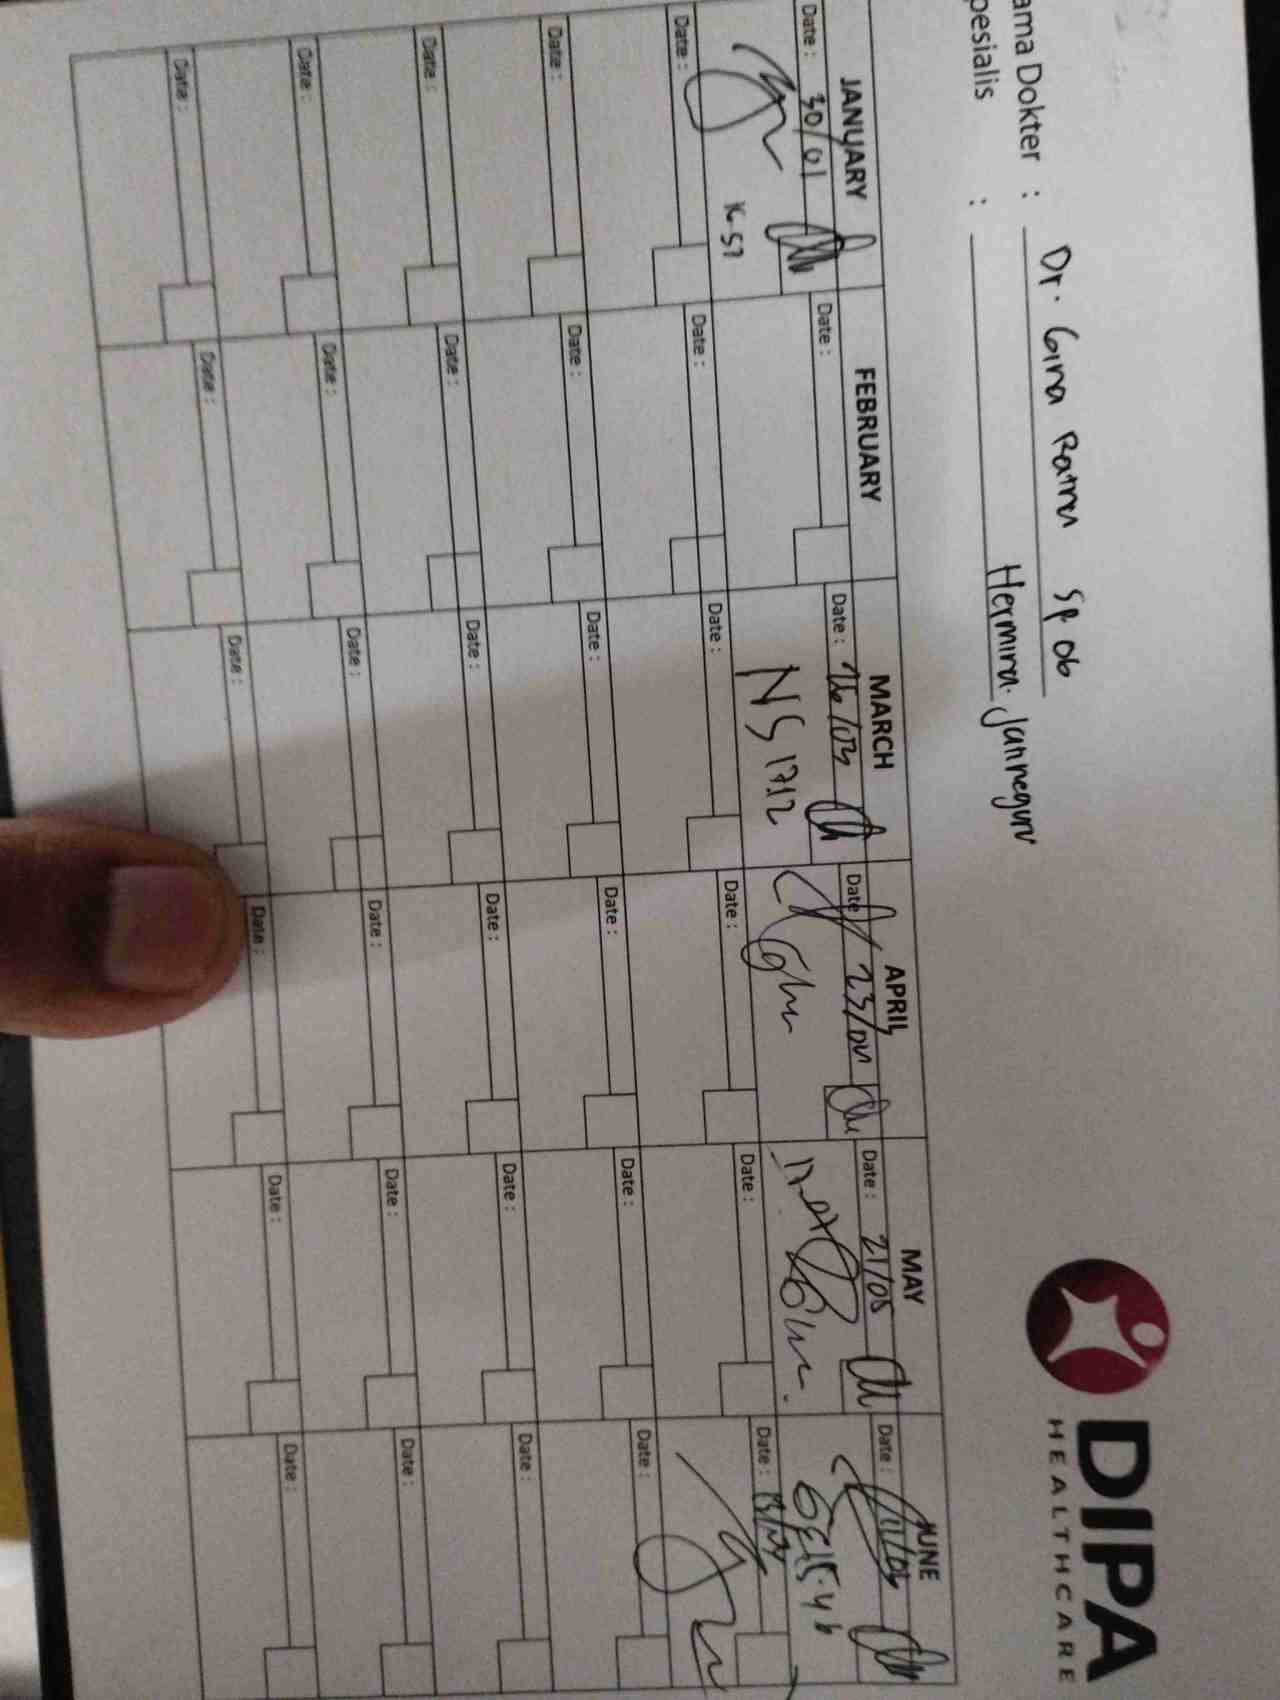 DIPA
HEALTHCARE
ama Dokter : Dr. Gina Ratna Sp OG
pesialis : Hermina Jatinegara
JANUARY FEBRUARY MARCH APRIL MAY JUNE
Date : 30/01 Date : Date : 26/03 Date 23/04 Date : 21/05 Date :
16.57 NS 17.12 15.46
Date : Date : Date : Date : Date : Date :
Date : Date : Date : Date : Date : Date :
Date : Date : Date : Date : Date : Date :
Date : Date : Date : Date : Date : Date :
Date : Date : Date : Date : Date : Date :